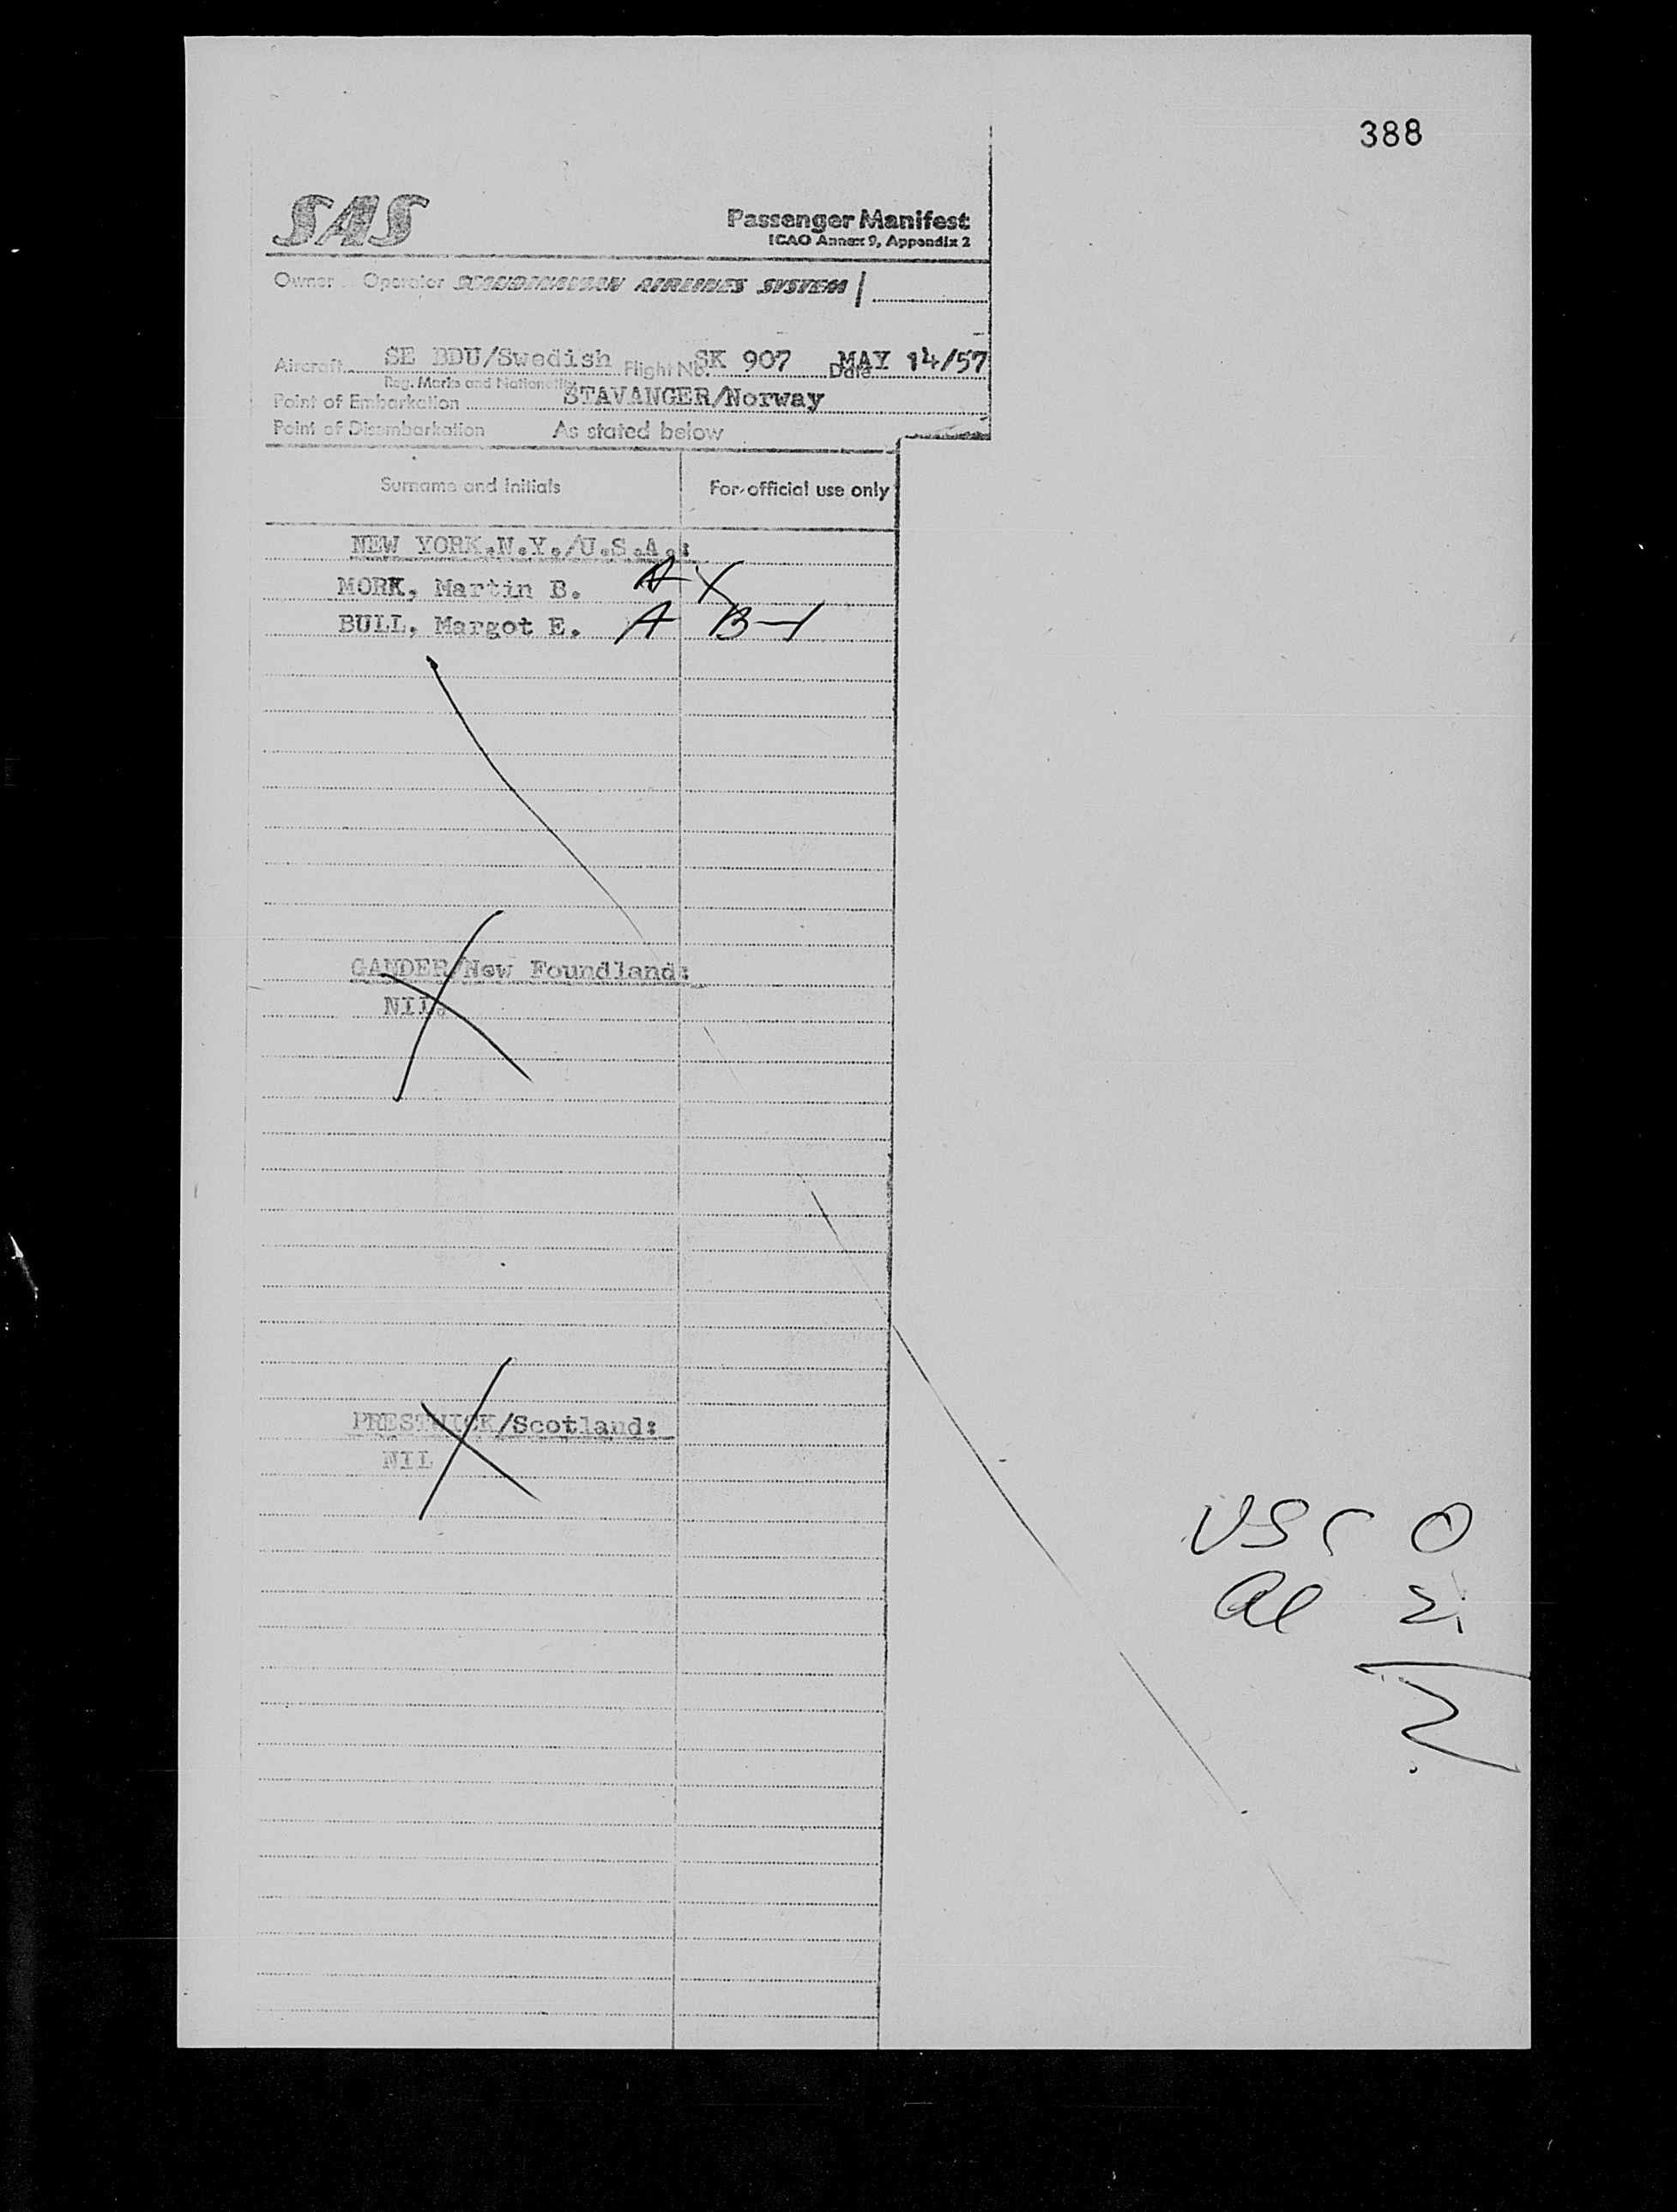 388
SAS
Passenger Manifest
ICAO Annex 9, Appendix 2
Owner Operator SCANDINAVIAN AIRLINES SYSTEM
Aircraft SE BDU/Swedish Flight No. SK 907 Date MAY 14/57
Reg. Marks and Nationality
Point of Embarkation STAVANGER/Norway
Point of Disembarkation As stated below
Surname and initials For official use only
NEW YORK.N.Y./U.S.A.:
MORK, Martin B. A X
BULL, Margot E. A B-1
GANDER/New Foundland:
NIL.
PRESTWICK/Scotland:
NIL
USC 0
al 2
2